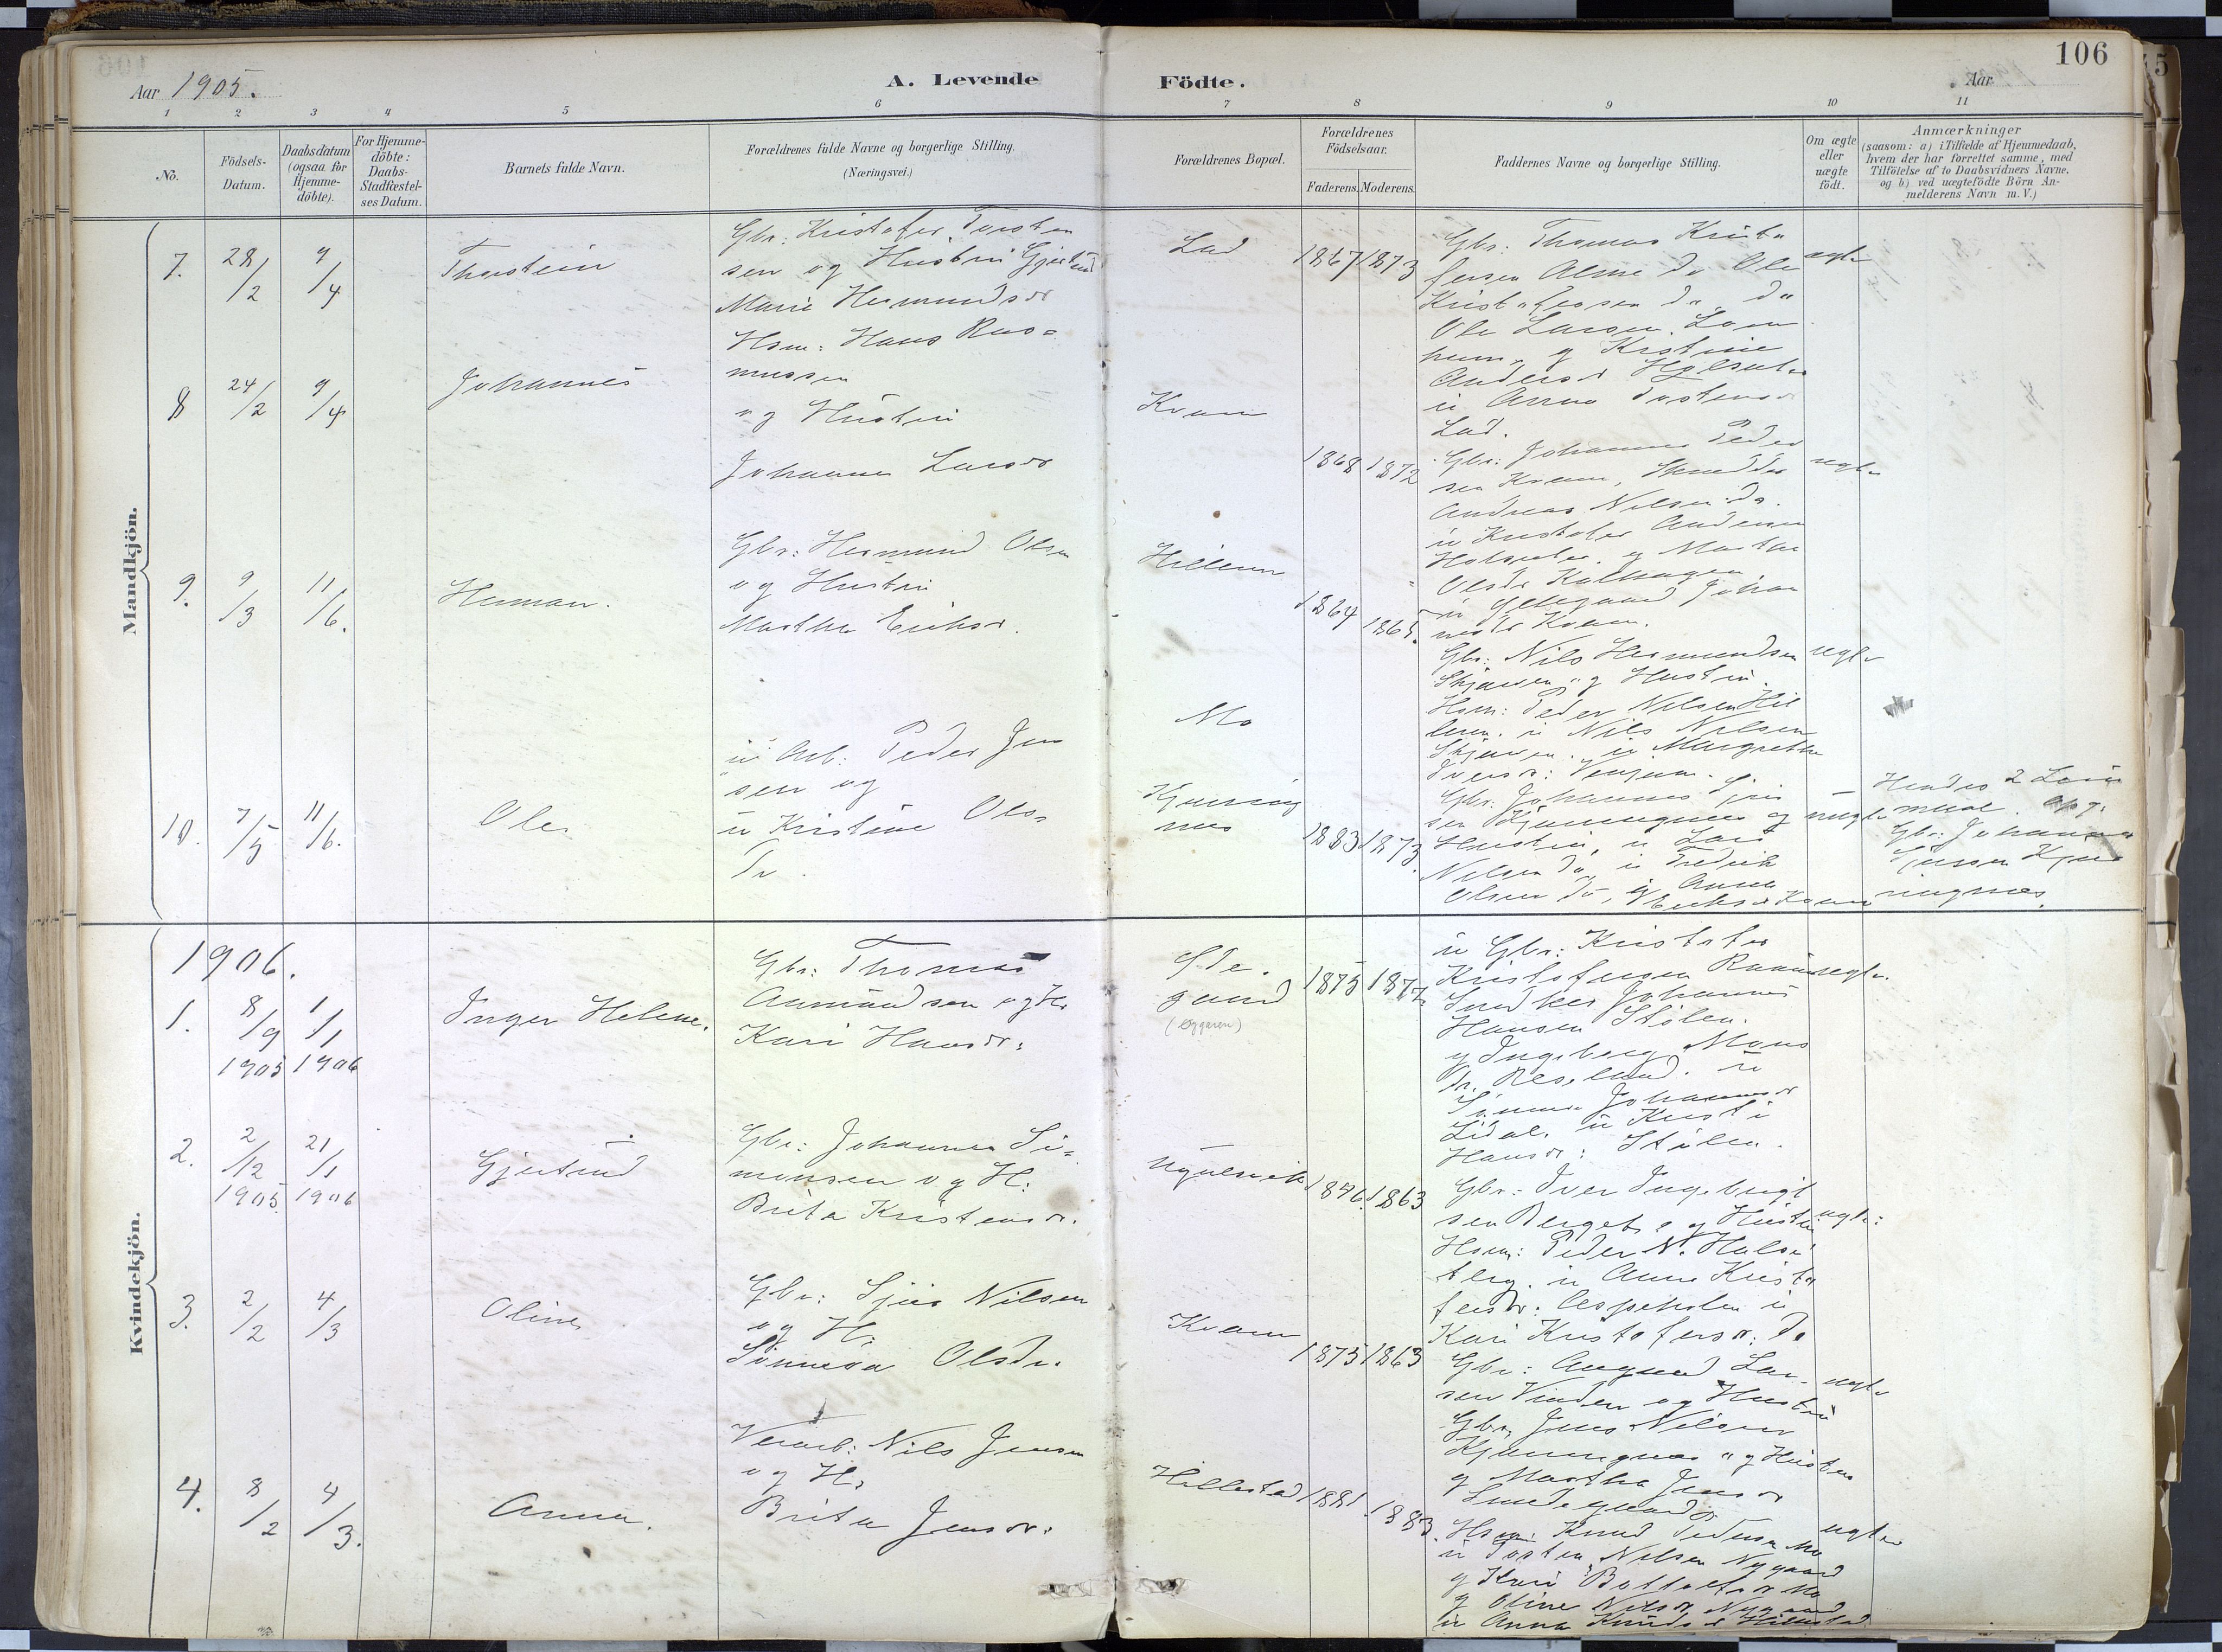 106
Aar 1905.
A. Levende Födte.
Aar
1 2 3 4 5 6 7 8 9 10 11
No.
Födsels-Datum.
Daabsdatum (ogsaa for Hjemme-döbte).
For Hjemme-döbte: Daabs-Stadfæstel-ses Datum.
Barnets fulde Navn.
Forældrenes fulde Navne og borgerlige Stilling. (Næringsvei.)
Forældrenes Bopæl.
Forældrenes Födselsaar.
Faderens. Moderens.
Faddernes Navne og borgerlige Stilling.
Om ægte eller uægte födt.
Anmærkninger
(saasom: a) i Tilfælde af Hjemmedaab,
hvem der har forrettet samme, med
Tilföielse af to Daabsvidners Navne.
og b) ved uægtefödte Börn An-
melderens Navn m. V.)
Mandkjön.
7. 28/2 9/4 Thorstein
Gbr: Kristofer Torsten
sen og Hustru Gjertrud
Marie Hermundsdr
Lad 1867 1873
Gbr: Thomas Kristo
fersen Alme do Ole
Kristofersen do do
Ole Larsen Lom
heim og Kristine
Andersdr Holsæter
u Anna Tostensdr
Lad.
ægte
8 24/2 9/4 Johannes
Hsm: Hans Ras=
mussen
og Hustru
Johanna Larsdr
Kvam 1868 1872
Gbr: Johannes Peder
sen Kvam,
Andreas Nilsen do.
u Kristofer Andersen
Holsæter og Martha
Olsdr Kalhagen
u Johan
nesdr Kvam.
ægte
9. 9/3 11/6. Herman.
Gbr: Hermund Olsen
og Hustru
Martha Eriksdr.
Hillern 1864 1865.
Gbr: Nils Hermundsen
Skjerven og Hustru.
Hsm: Peder Nilsen Hil
lern. u Nils Nilsen
Skjerven. u Margretha
Iversdr: Venjum.
ægte
10. 7/5 11/6. Ole
u Arb: Peder Jen
sen og
u Kristine Ols=
dr.
Mo
Kjørring
nes
1883 1873.
Gbr: Johannes Sjur
sen Kjørringnes og
Hustru, u Lars
Nilsen do, u Fredrik
Olsen do, og Anna
Eriksdr Kvam
uægte
Hendes 2 Leier
maal. Opg.
Gbr: Johannes
Sjursen Kjør
ringnes.
Kvindekjön.
1906.
1. 8/9 1905 1/1 1906 Inger Helene.
Gbr: Thomas
Aamundsen og H.
Kari Hansdr:
Ode.
gaard
(Eggaren)
1875 1877
u Gbr: Kristofer
Kristofersen Raaum
Snedker Johannes
Hansen Stölen.
og Ingeborg Mons
dr. Reselund. u
Sønneva Johannesdr
Lidal. u Kristi
Hansdr: Stölen.
ægte.
2. 2/12 1905. 21/1 1906 Gjertrud
Gbr: Johannes Si=
monsen og H:
Brita Kristensdr.
Nygelvik 1876. 1863
Gbr: Iver Ingebrigt
sen Berget og Hustru
Hsm: Peder N. Hals
berg. u Anne Kristo
fersdr: Aspeholen u
Kari Kristofersdr: do
ægte:
3. 2/2 4/3 Oline
Gbr: Sjur Nilsen
og H:
Sünneva Olsdr.
Kvam 1875 1863
Gbr: Aagaard Lar-
sen Vinden og Hustru
Gbr, Jens Nilsen
Kjørringnes og Hustru
og Martha Jensdr
Smedegaard
ægte
4. 8/2 4/3. Anna.
Verarb: Nils Jensen
og H:
Brita Jensdr:
Hillestad 1881. 1883.
Hsm: Knud Pedersen Mo
u Torsten Nilsen Nygaard
og Kari Bottolfsdr Mo
og Oline Nilsdr Nygaard
u Anna Knudsdr Hillestad
ægte